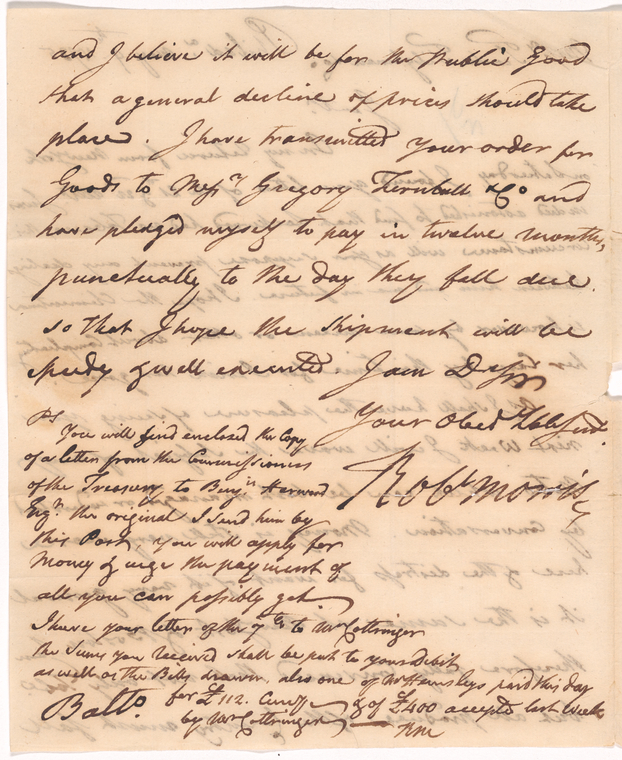 and I believe it will be for the Public Good
that a general decline of prices should take
place. I have transmitted your order for
Goods to Messrs Gregory Turnbull & Co and
have pledged myself to pay in twelve months,
punctually to the day they fall due.
so that I hope the shipment will be
speedy & well executed I am Dr Sir
Your Obedt Hble Servt.
Robt Morris
PS
You will find enclosed the Copy
of a letter from the Commissioners
of the Treasury to Benjn Harwood
Esqr. the original I send him by
this Post, you will apply for
Money & urge the payment of
all you can possibly get
I have your letter of the 7th to Mr Cottringer
the Sums you received shall be put to your Debit
as well as the Bills drawn, also one of Mr Hemsleys paid this day
for £112. Curry & of £400 accepted last Week
by Mr Cottringer RM
Balto.